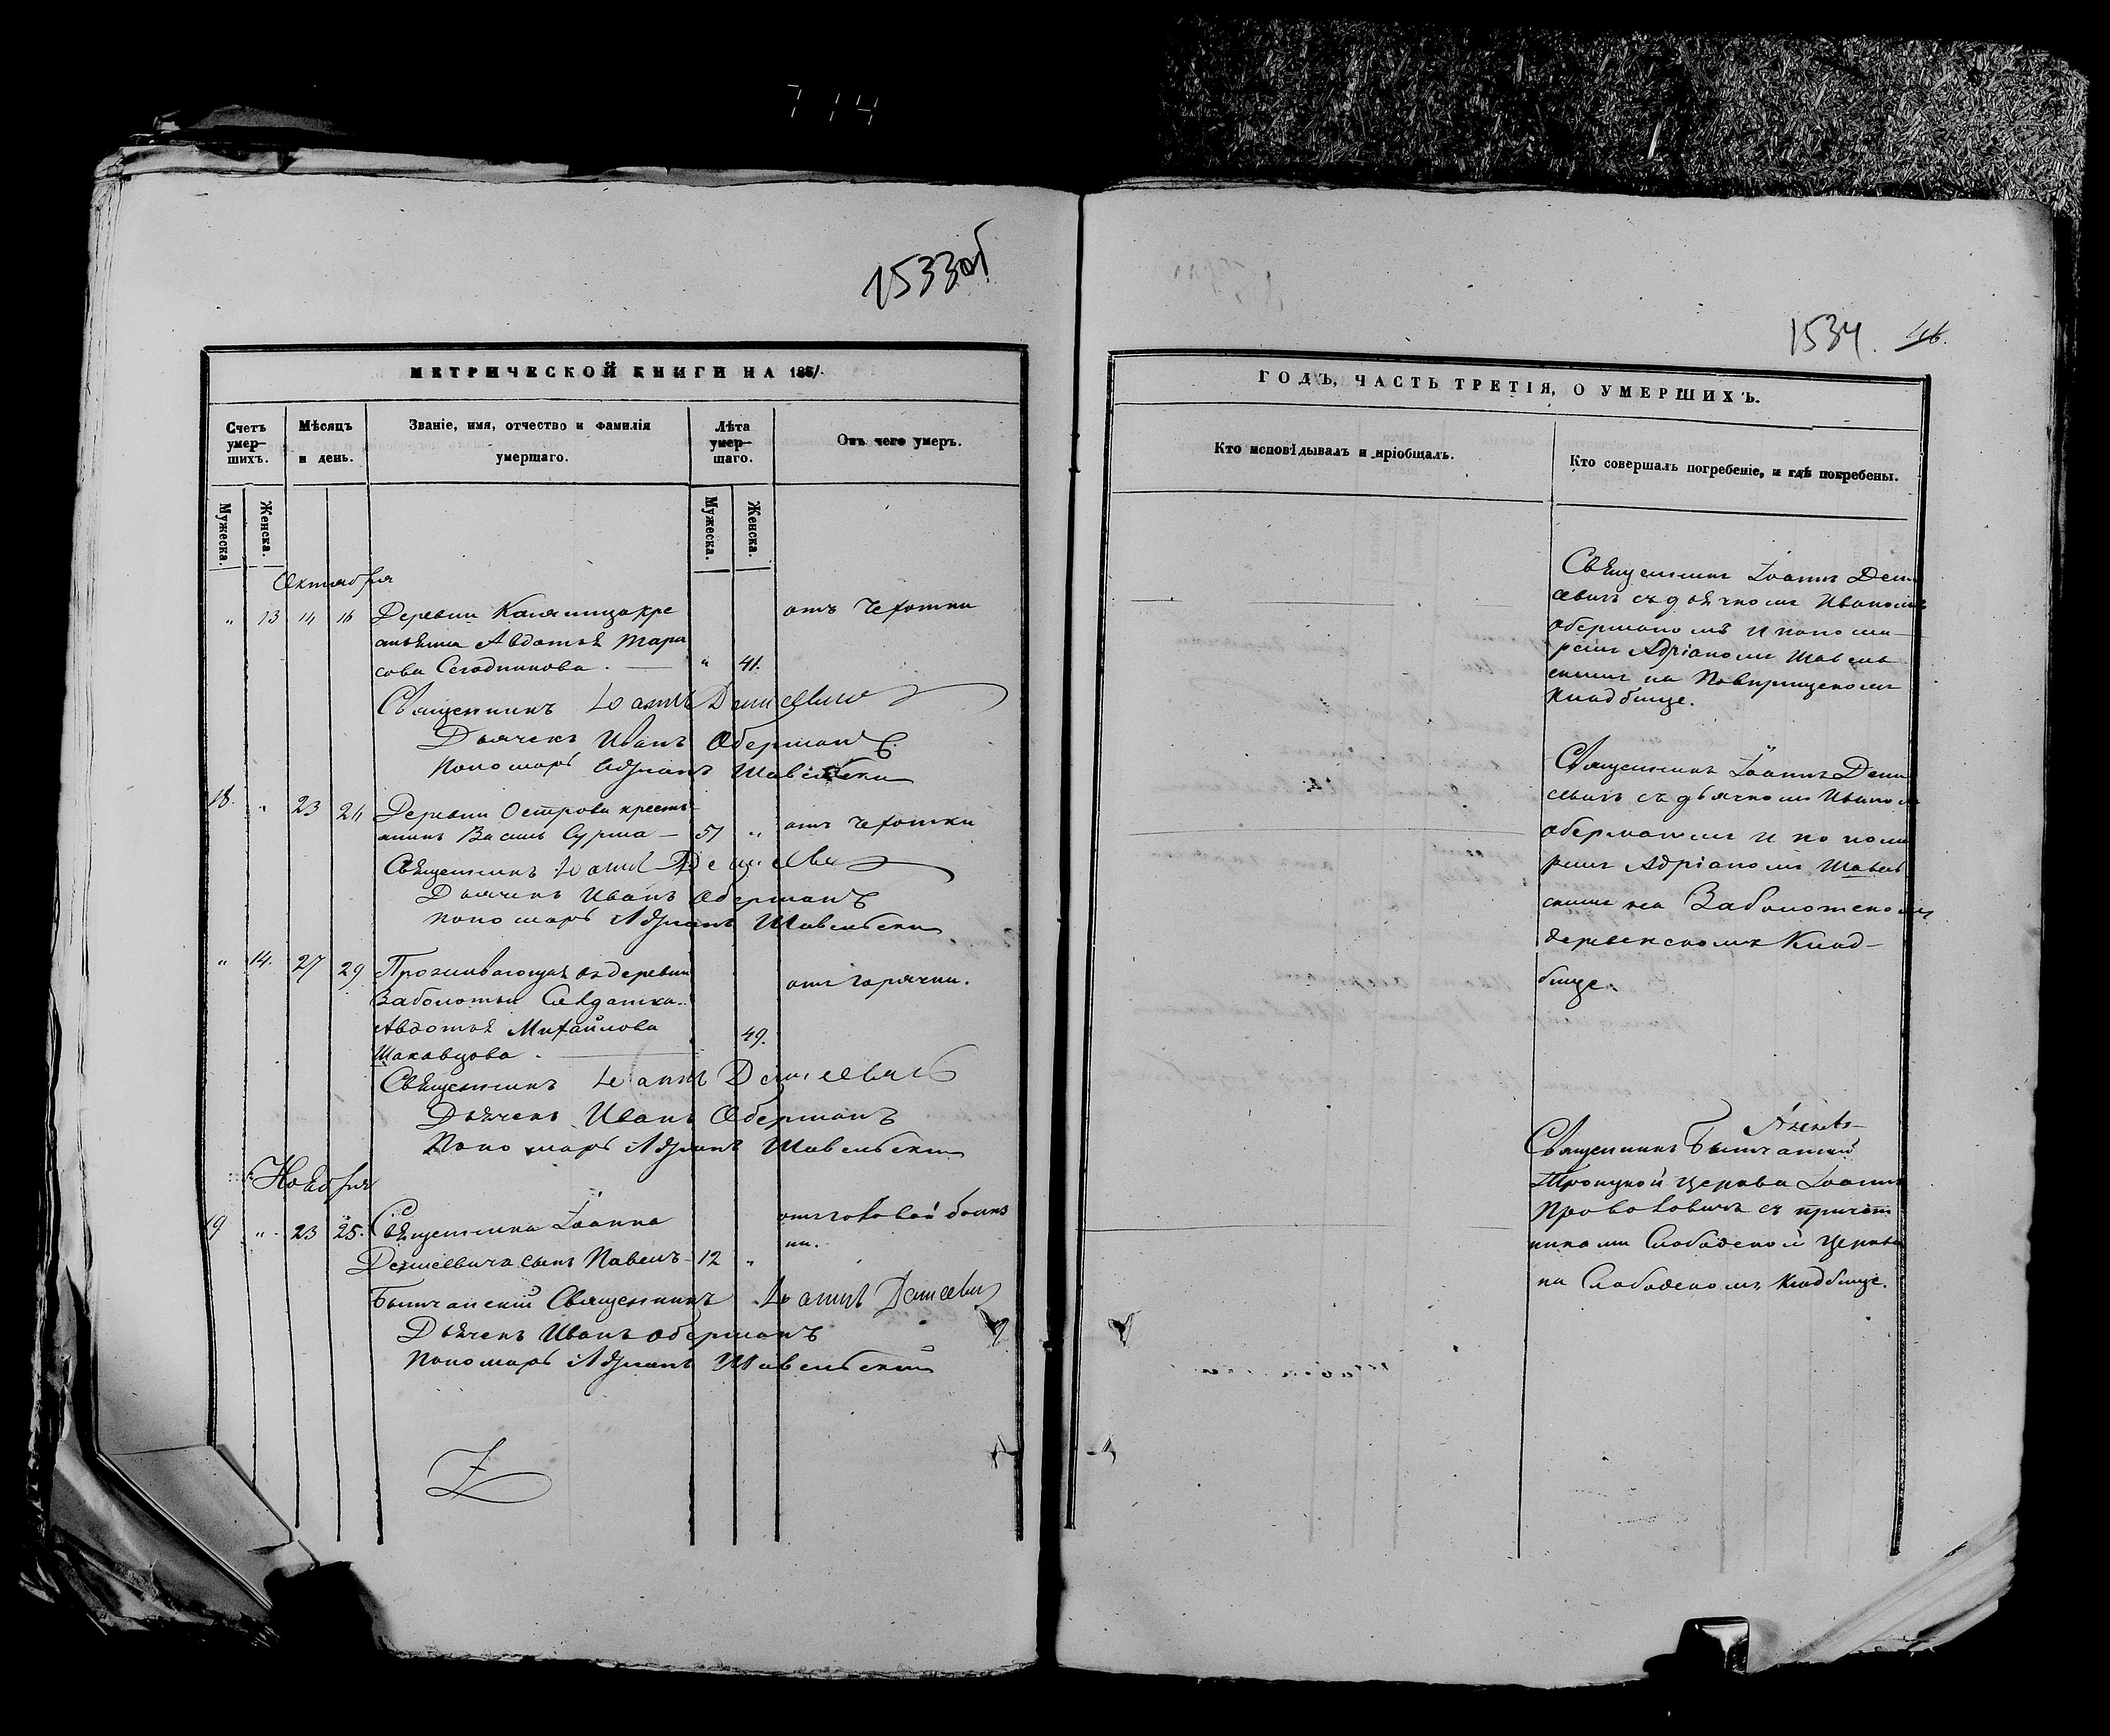 714
1533об
МЕТРИЧЕСКОЙ КНИГИ НА 1861.
Счетъ умер-шихъ.
Мѣсяцъ и день.
Званіе, имя, отчество и фамилія умершаго.
Лѣта умер-шаго.
Отъ чего умеръ.
Мужеска.
Женска.
Мужеска.
Женска.
Октября
" 13 14 16 Деревни кре
стьянка Авдотья Тара
сова " 41.
отъ Чехотки
Священникъ Іоаннъ Денисевичъ
Дьячекъ Иванъ Оберманъ
Пономарь Адріанъ Шавельски
18. " 23 24 Деревни Острова кресть
янинъ Василь Сурма — 57 " отъ Чехотки
Священникъ Іоаннъ Денисевич
Дьячекъ Иванъ Оберманъ
пономарь Адріанъ Шавельски
" 14. 27 29 Проживающая въ деревни
Заболотьи Солдатка
Авдотья Михайлова 49.
отъ горячки.
Священникъ Іоаннъ Денисевичъ
Дьячекъ Иванъ Оберманъ
Пономарь Адріанъ Шавельски
Ноября
19 " 23 25. Священника Іоанна
Денисевича сынъ Павелъ 12 "
отъ головой болез
ни.
Бытчанскій Священникъ Іоаннъ Денисевич
Дьячекъ Иванъ Оберманъ
Пономарь Адріанъ Шавельскій
1534. 46.
ГОДЪ, ЧАСТЬ ТРЕТІЯ, О УМЕРШИХЪ.
Кто исповѣдывалъ и пріобщалъ.
Кто совершалъ погребеніе, и гдѣ погребены.
Священникъ Іоаннъ Дени
севичъ съ дьячкомъ Иваномъ
Оберманомъ и понома
ремъ Адріаномъ Шавель
скимъ на
Кладбище.
Священникъ Іоаннъ Дени
севичъ съ дьячкомъ Иваном
Оберманомъ и понома
ремъ Адріаномъ Шавель
скимъ на Заболотскомъ
деревенскомъ Клад-
бище.
Священникъ Бытчанской
Троицкой церкви Іоаннъ
съ причет
никами Слободской Церкви
на Слободскомъ Кладбище.